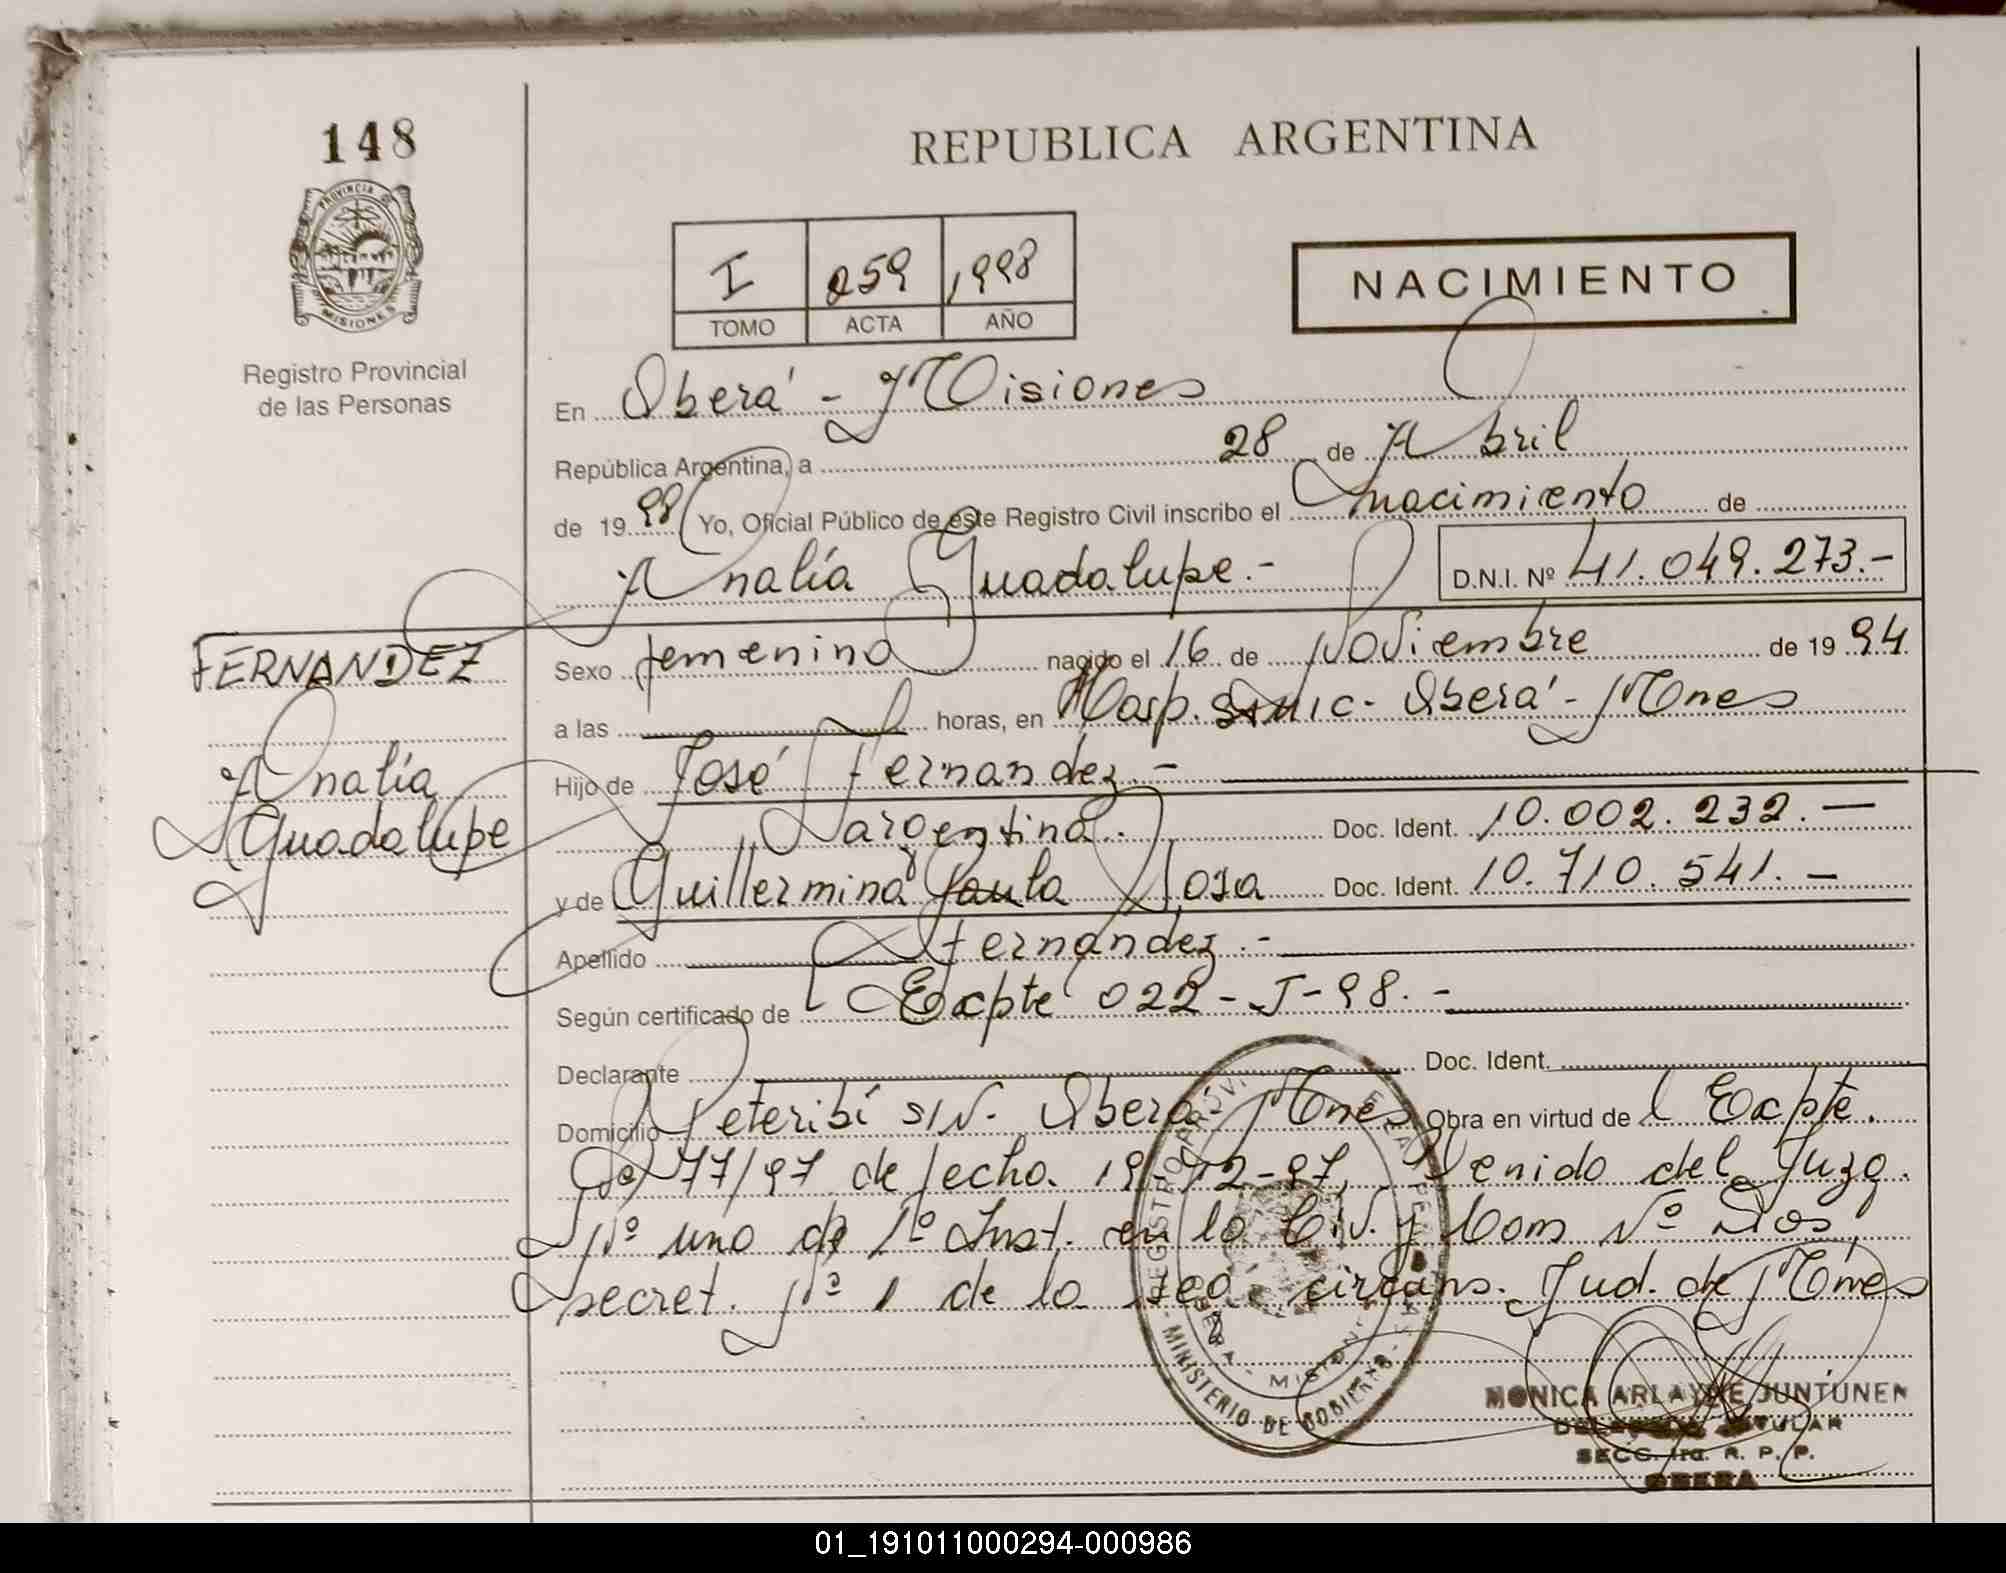 148
PROVINCIA DE
MISIONES
Registro Provincial
de las Personas
REPUBLICA ARGENTINA
I 259 1998
TOMO ACTA AÑO
NACIMIENTO
En Oberá - Misiones
República Argentina, a 28 de Abril
de 19 98 Yo, Oficial Público de este Registro Civil inscribo el nacimiento de
Analía Guadalupe.- D.N.I. Nº 41.049.273.-
FERNANDEZ
Analía
Guadalupe
Sexo femenino nacido el 16 de Noviembre de 19 94
a las horas, en Hosp. SAMIC - Oberá - Mnes
Hijo de José Fernandez.-
argentino. Doc. Ident. 10.002.232.-
y de Guillermina Sosa Doc. Ident. 10.710.541.-
Apellido Fernandez.-
Según certificado de Expte 022-J-98.-
Declarante Doc. Ident.
Domicilio Peteribí S/N. Oberá - Mnes Obra en virtud de l Expte.
77/97 de fecha 19-12-97, Venido del Juzg.
Nº uno de 1º Inst. en lo Civ. y Com Nº Dos,
secret. Nº 1 de la seg. circuns. Jud. de Mnes
MINISTERIO DE GOBIERNO
MONICA ARLAYNE JUNTUNEN
TITULAR
SECC. 1ra. R. P. P.
OBERA
01_191011000294-000986